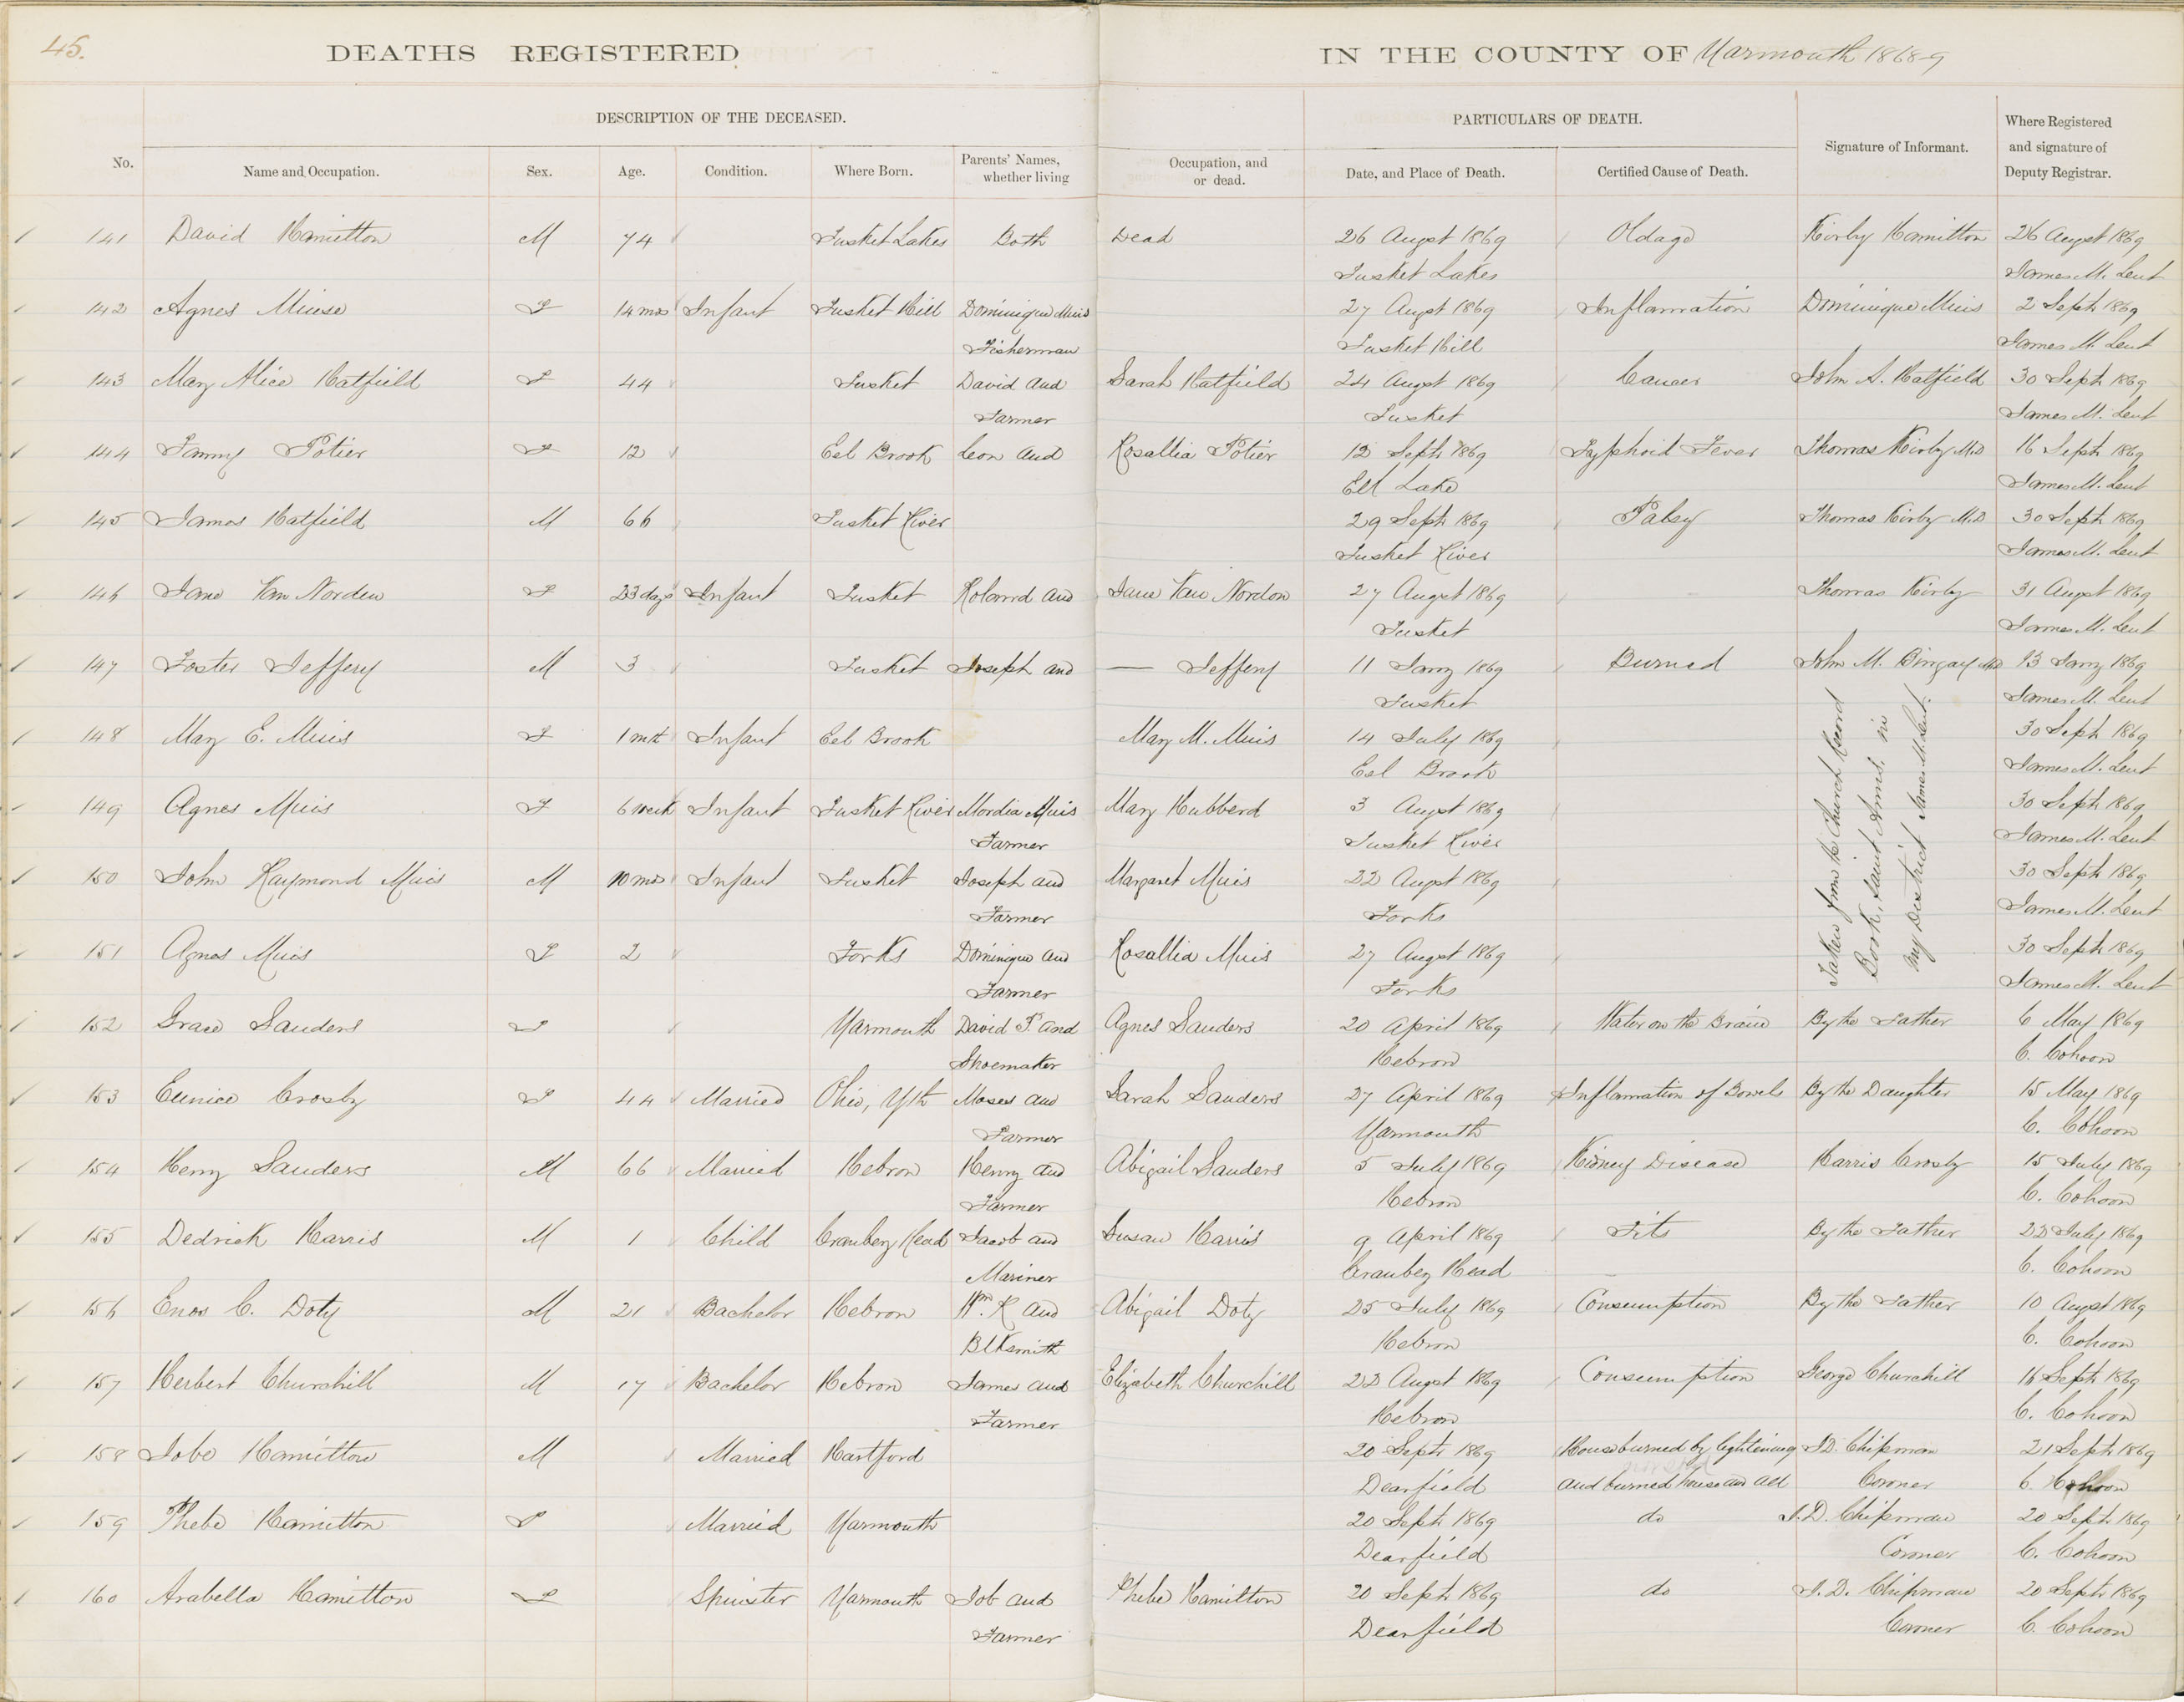 45.
DEATHS REGISTERED IN THE COUNTY OF Yarmouth 1868-9
DESCRIPTION OF THE DECEASED. PARTICULARS OF DEATH.
No. Name and Occupation. Sex. Age. Condition. Where Born. Parents' Names, whether living Occupation, and or dead. Date, and Place of Death. Certified Cause of Death. Signature of Informant. Where Registered and signature of Deputy Registrar.
141 David Hamilton M 74 Tusket Lakes Both Dead 26 Augst 1869 Oldage Kirby Hamilton 26 Augst 1869
Tusket Lakes James M. Lent
142 Agnes Miuse F 14 mos Infant Tusket Hill Dominique Muis 27 Augst 1869 Inflamation Dominique Muis 2 Septr 1869
Fisherman Tusket Hill James M. Lent
143 Mary Alice Hatfield F 44 Tusket David and Sarah Hatfield 24 Augst 1869 Cancer John A. Hatfield 30 Septr 1869
Farmer Tusket James M. Lent
144 Fanny Potier F 12 Eel Brook Leon and Rosallia Potier 12 Septr 1869 Typhoid Fever Thomas Kirby M.D 16 Septr 1869
Ell Lake James M. Lent
145 James Hatfield M 66 Tusket River 29 Septr 1869 Palsy Thomas Kirby M.D 30 Septr 1869
Tusket River James M. Lent
146 Jane Van Norden F 23 days Infant Tusket Roland and Jane Van Nordon 27 Augst 1869 Thomas Kirby 31 Augst 1869
Tusket James M. Lent
147 Foster Jeffery M 3 Tusket Joseph and — Jeffery 11 Jany 1869 Burned John M. Bingay M.D 13 Jany 1869
Tusket James M. Lent
148 Mary E. Muis F 1 mth Infant Eel Brook Mary M. Muis 14 July 1869 30 Septr 1869
Eel Brook James M. Lent
149 Agnes Muis F 6 week Infant Tusket River Mordia Muis Mary Hubberd 3 Augst 1869 30 Septr 1869
Farmer Tusket River James M. Lent
150 John Raymond Muis M 10 mos Infant Tusket Joseph and Margaret Muis 22 Augst 1869 30 Septr 1869
Farmer Forks James M. Lent
151 Agnes Muis F 2 Forks Dominique and Rosallia Muis 27 Augst 1869 30 Septr 1869
Farmer Forks James M. Lent
Taken from the Church Record
Book, Saint Anns, in
my District James M. Lent.
152 Grace Sanders F Yarmouth David F. and Agnes Sanders 20 April 1869 Water on the Brain By the Father 6 May 1869
Shoemaker Hebron C. Cohoon
153 Eunice Crosby F 44 Married Ohio, Yth Moses and Sarah Sanders 27 April 1869 Inflamation of Bowels By the Daughter 15 May 1869
Farmer Yarmouth C. Cohoon
154 Henry Sanders M 66 Married Hebron Henry and Abigail Sanders 5 July 1869 Kidney Disease Harris Crosby 15 July 1869
Farmer Hebron C. Cohoon
155 Dedrick Harris M 1 Child Cranbery Head Jacob and Susan Harris 9 April 1869 Fits By the Father 22 July 1869
Mariner Cranbey Head C. Cohoon
156 Enos C. Doty M 21 Bachelor Hebron Wm. R and Abigail Doty 25 July 1869 Consumption By the Father 10 Augst 1869
Blksmith Hebron C. Cohoon
157 Herbert Churchill M 17 Bachelor Hebron James and Elizabeth Churchill 22 Augst 1869 Consumption George Churchill 16 Septr 1869
Farmer Hebron C. Cohoon
158 Jobe Hamilton M Married Hartford 20 Septr 1869 House burned by lightening I.D. Chipman 21 Septr 1869
Dearfield and burned house and all Coroner C. Cohoon
159 Phebe Hamilton F Married Yarmouth 20 Septr 1869 do I.D. Chipman 20 Septr 1869
Dearfield Coroner C. Cohoon
160 Arabella Hamilton F Spinster Yarmouth Job and Phebe Hamilton 20 Septr 1869 do I.D. Chipman 20 Septr 1869
Farmer Dearfield Coroner C. Cohoon